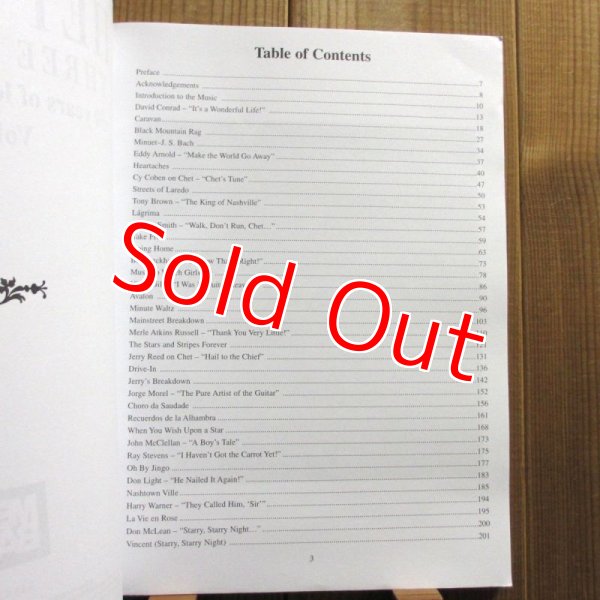 Table of Contents
Preface 7
Acknowledgements 8
Introduction to the Music 10
David Conrad – “It's a Wonderful Life!” 13
Caravan 18
Black Mountain Rag 27
Minuet–J. S. Bach 34
Eddy Arnold – “Make the World Go Away” 37
Heartaches 40
Cy Coben on Chet – “Chet's Tune” 47
Streets of Laredo 50
Tony Brown – “The King of Nashville” 53
Lágrima 54
Smith – “Walk, Don't Run, Chet…” 57
59
Home 63
Right!” 73
78
“I Was 86
Avalon 90
Minute Waltz 96
Mainstreet Breakdown 103
Merle Atkins Russell – “Thank You Very Little!” 110
The Stars and Stripes Forever 121
Jerry Reed on Chet – “Hail to the Chief” 131
Drive-In 136
Jerry's Breakdown 142
Jorge Morel – “The Pure Artist of the Guitar” 152
Choro da Saudade 156
Recuerdos de la Alhambra 161
When You Wish Upon a Star 168
John McClellan – “A Boy's Tale” 173
Ray Stevens – “I Haven't Got the Carrot Yet!” 175
Oh By Jingo 177
Don Light – “He Nailed It Again!” 183
Nashtown Ville 185
Harry Warner – “They Called Him, ‘Sir’” 194
La Vie en Rose 195
Don McLean – “Starry, Starry Night…” 200
Vincent (Starry, Starry Night) 201
3
Sold Out